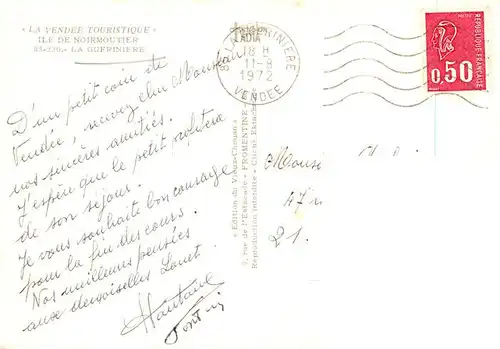 « LA VENDEE TOURISTIQUE »
ILE DE NOIRMOUTIER
85-230.- LA GUERINIERE
D'un petit coin de
Vendée, recevez cher Monsieur
nos sincères amitiés.
J'espère que le petit profitera
de son séjour.
Je vous souhaite bon courage
pour la fin des cours.
Nos meilleures pensées
aux demoiselles
« Edition du Vieux-Chouan »
rue de l'Estacade - FROMENTINE
Reproduction interdite -
GUERINIERE
18 H
11-8
1972
VENDEE
REPUBLIQUE FRANÇAISE
0,50
47
21.